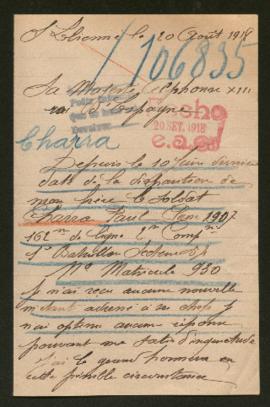 St Etienne le 20 Août 1918
106835
Sa Majesté Alphonse XIII
roi d'Espagne
20 SET. 1918
Charra
Depuis le 10 Juin dernier
date de la disparition de
mon frère le Soldat
Charra Paul Clas 1907
162me de ligne 1re Compgnie
1er Bataillon Secteur
No Matricule 930
je n'ai reçu aucune nouvelle
m'étant adressé à ses chefs je
n'ai obtenu aucune réponse
pouvant me
j'ai le grand honneur en
cette pénible circonstance